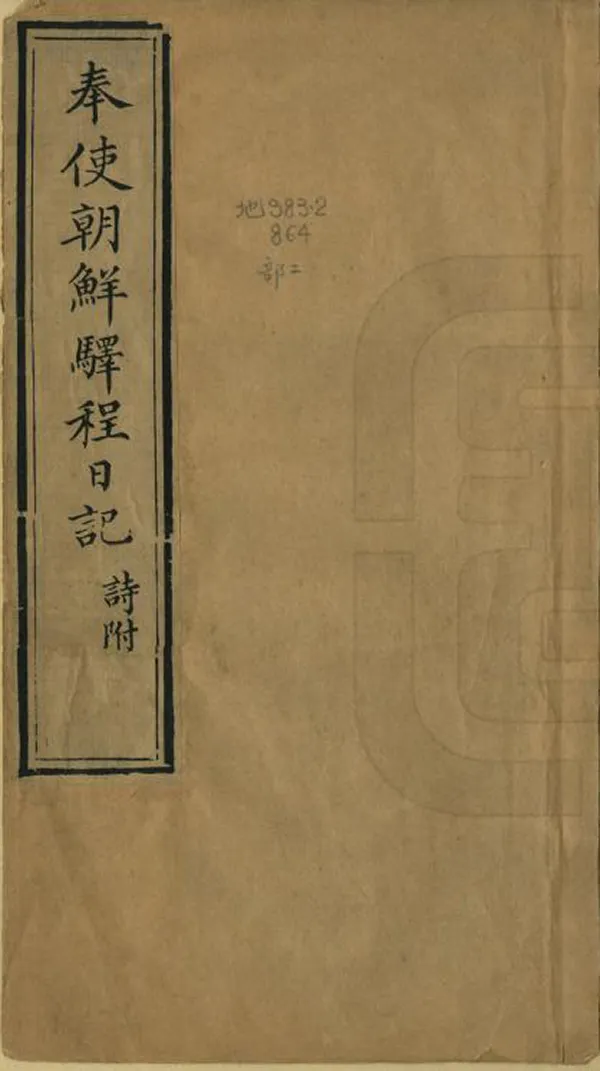 奉使朝鮮驛程日記
詩附
地983.2
864
部二